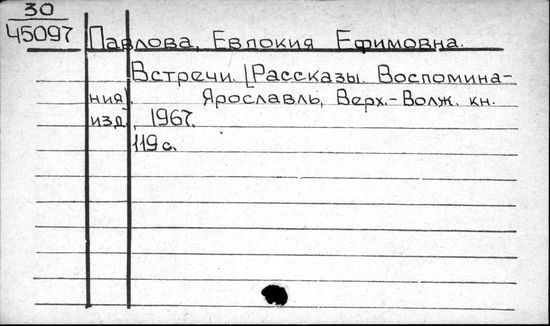 30
45097
Павлова, Евдокия Ефимовна.
Встречи. [Рассказы. Воспомина-
ния]. Ярославль, Верх.-Волж. кн.
изд., 1967.
119 с.